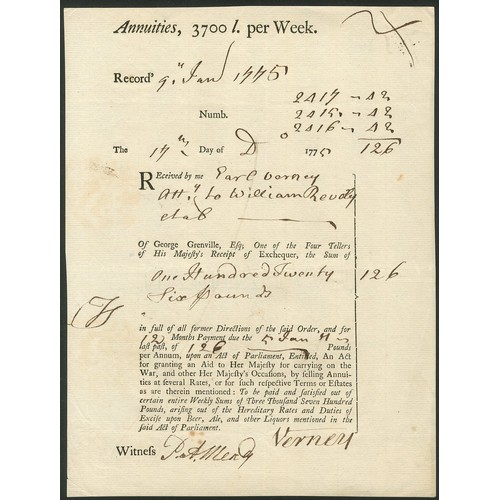 Annuities, 3700 l. per Week.
Record'd 9th Jan 1775
2417 - 42
Numb. 2415 - 42
2416 - 42
The 17th Day of D 1775 126
Received by me Earl Verney
Att.y to William Revely
et al
Of George Grenville, Esq; One of the Four Tellers
of His Majesty's Receipt of Exchequer, the Sum of
One Hundred Twenty 126
Six Pounds
in full of all former Directions of the said Order, and for
12 Months Payment due the 5 Jan
last past, of 126 Pounds
per Annum, upon an Act of Parliament, Entitled, An Act
for granting an Aid to Her Majesty for carrying on the
War, and other Her Majesty's Occasions, by selling Annui-
ties at several Rates, or for such respective Terms or Estates
as are therein mentioned: To be paid and satisfied out of
certain entire Weekly Sums of Three Thousand Seven Hundred
Pounds, arising out of the Hereditary Rates and Duties of
Excise upon Beer, Ale, and other Liquors mentioned in the
said Act of Parliament.
Verney
Witness